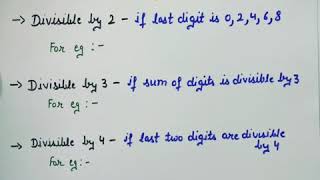 → Divisible by 2 – if last digit is 0,2,4,6,8
For eg :-
→ Divisible by 3 – if sum of digits is divisible by 3
For eg :-
→ Divisible by 4 – if last two digits are divisible
by 4
For eg :-